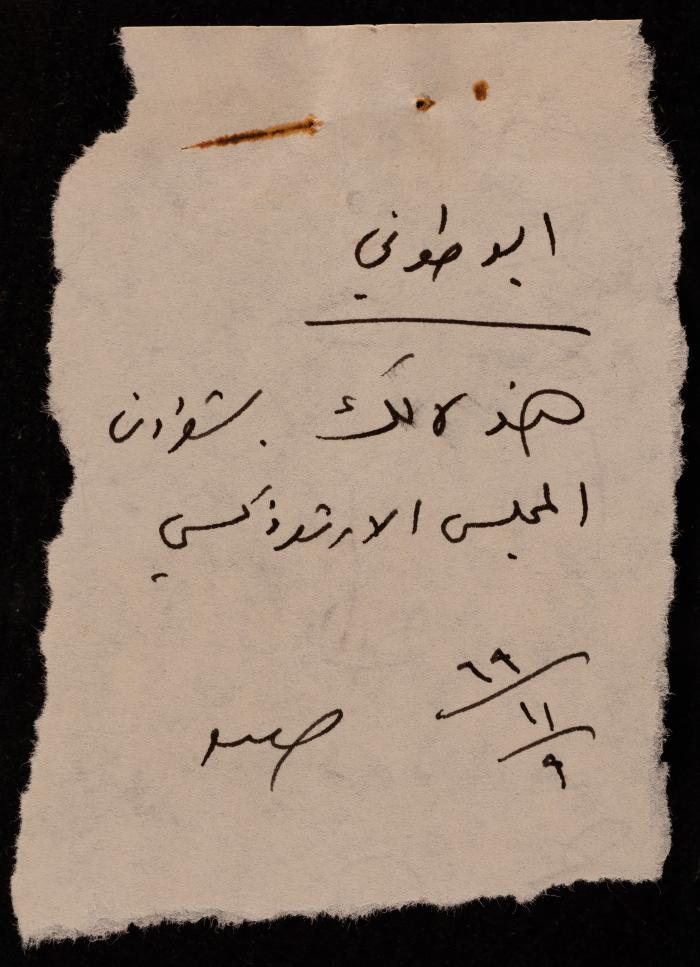 ابو طوني
هذه لالك بشؤون
المجلس الارثوذكسي
٦٩/١١/٩